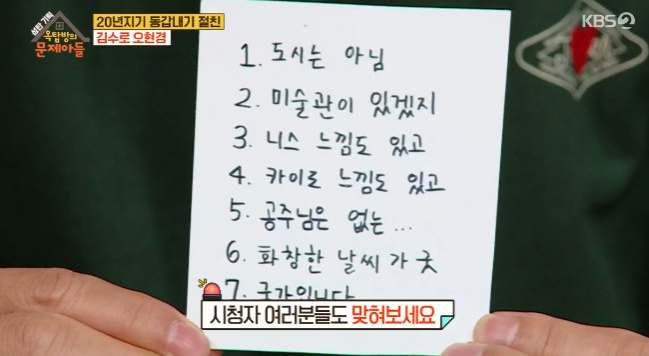 성탄 기획
옥탑방의
문제아들
20년지기 동갑내기 절친
김수로 오현경
KBS2
1. 도시는 아님
2. 미술관이 있겠지
3. 니스 느낌도 있고
4. 카이로 느낌도 있고
5. 공주님은 없는...
6. 화창한 날씨가 굿
7. 국가입니다
시청자 여러분들도 맞혀보세요